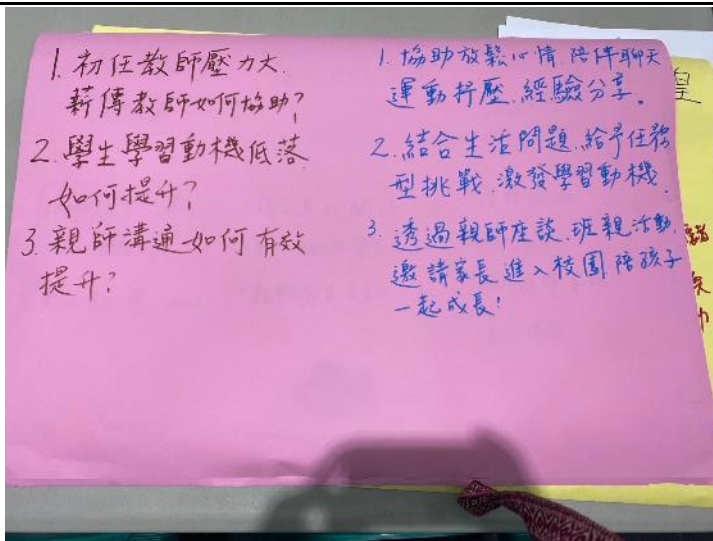 1. 初任教師壓力大.
薪傳教師如何協助?
2. 學生學習動機低落
如何提升?
3. 親師溝通如何有效
提升?
1. 協助放鬆心情.陪伴聊天
運動抒壓.經驗分享。
2. 結合生活問題.給予任務
型挑戰.激發學習動機.
3. 透過親師座談.班親活動.
邀請家長進入校園陪孩子
一起成長!
皇